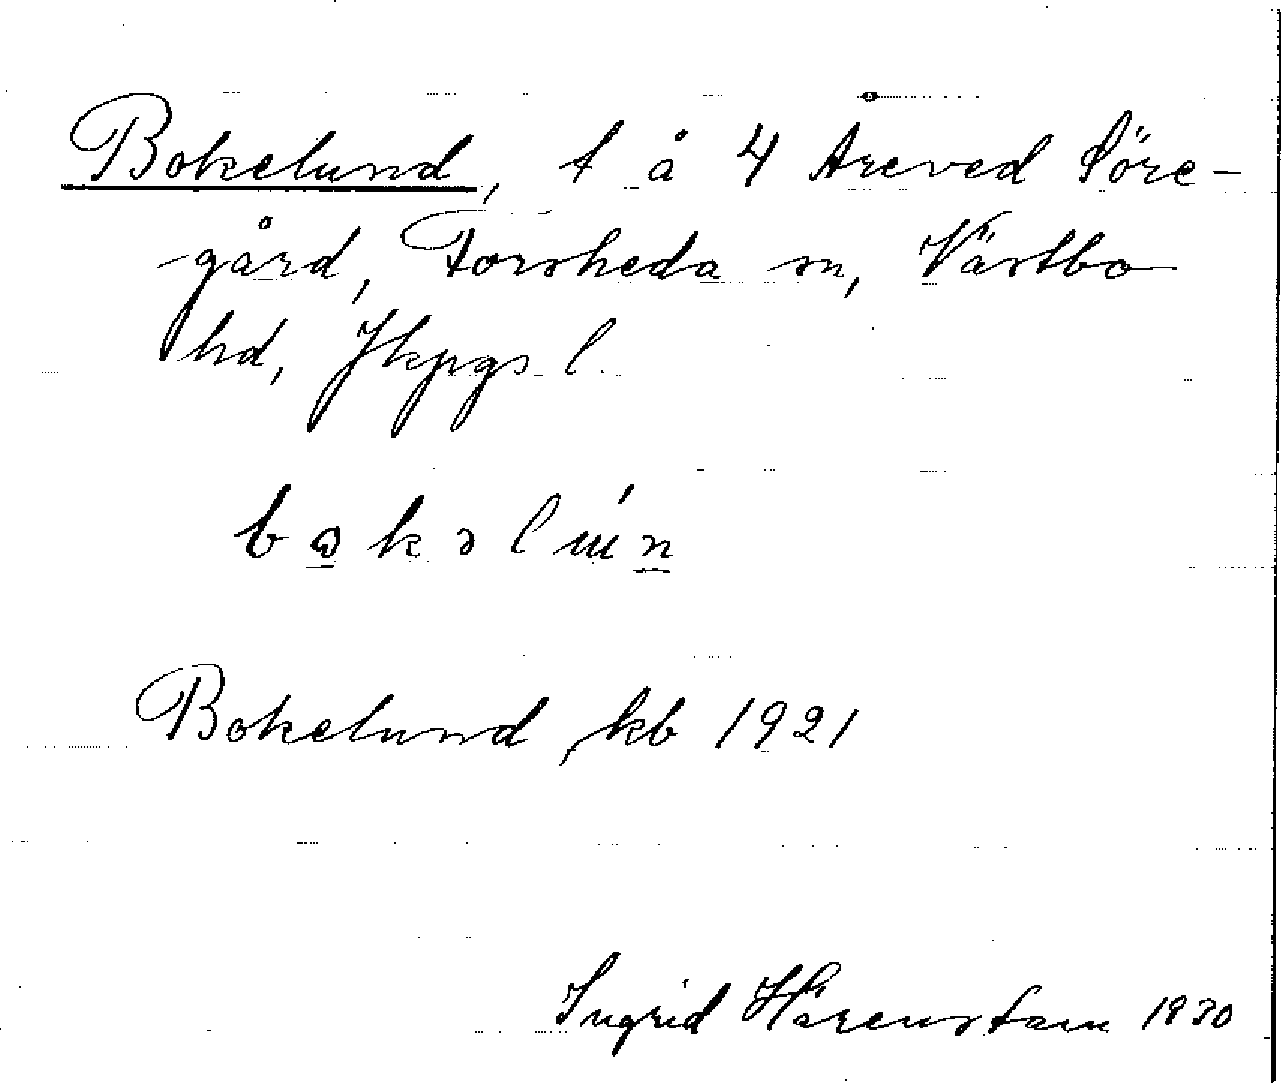 Bokelund, t å 4 Areved Söre-
gård, Forsheda sn, Västbo
hd, Jkpgs l.
Bokelund, kb 1921
Ingrid Härenstam 1930